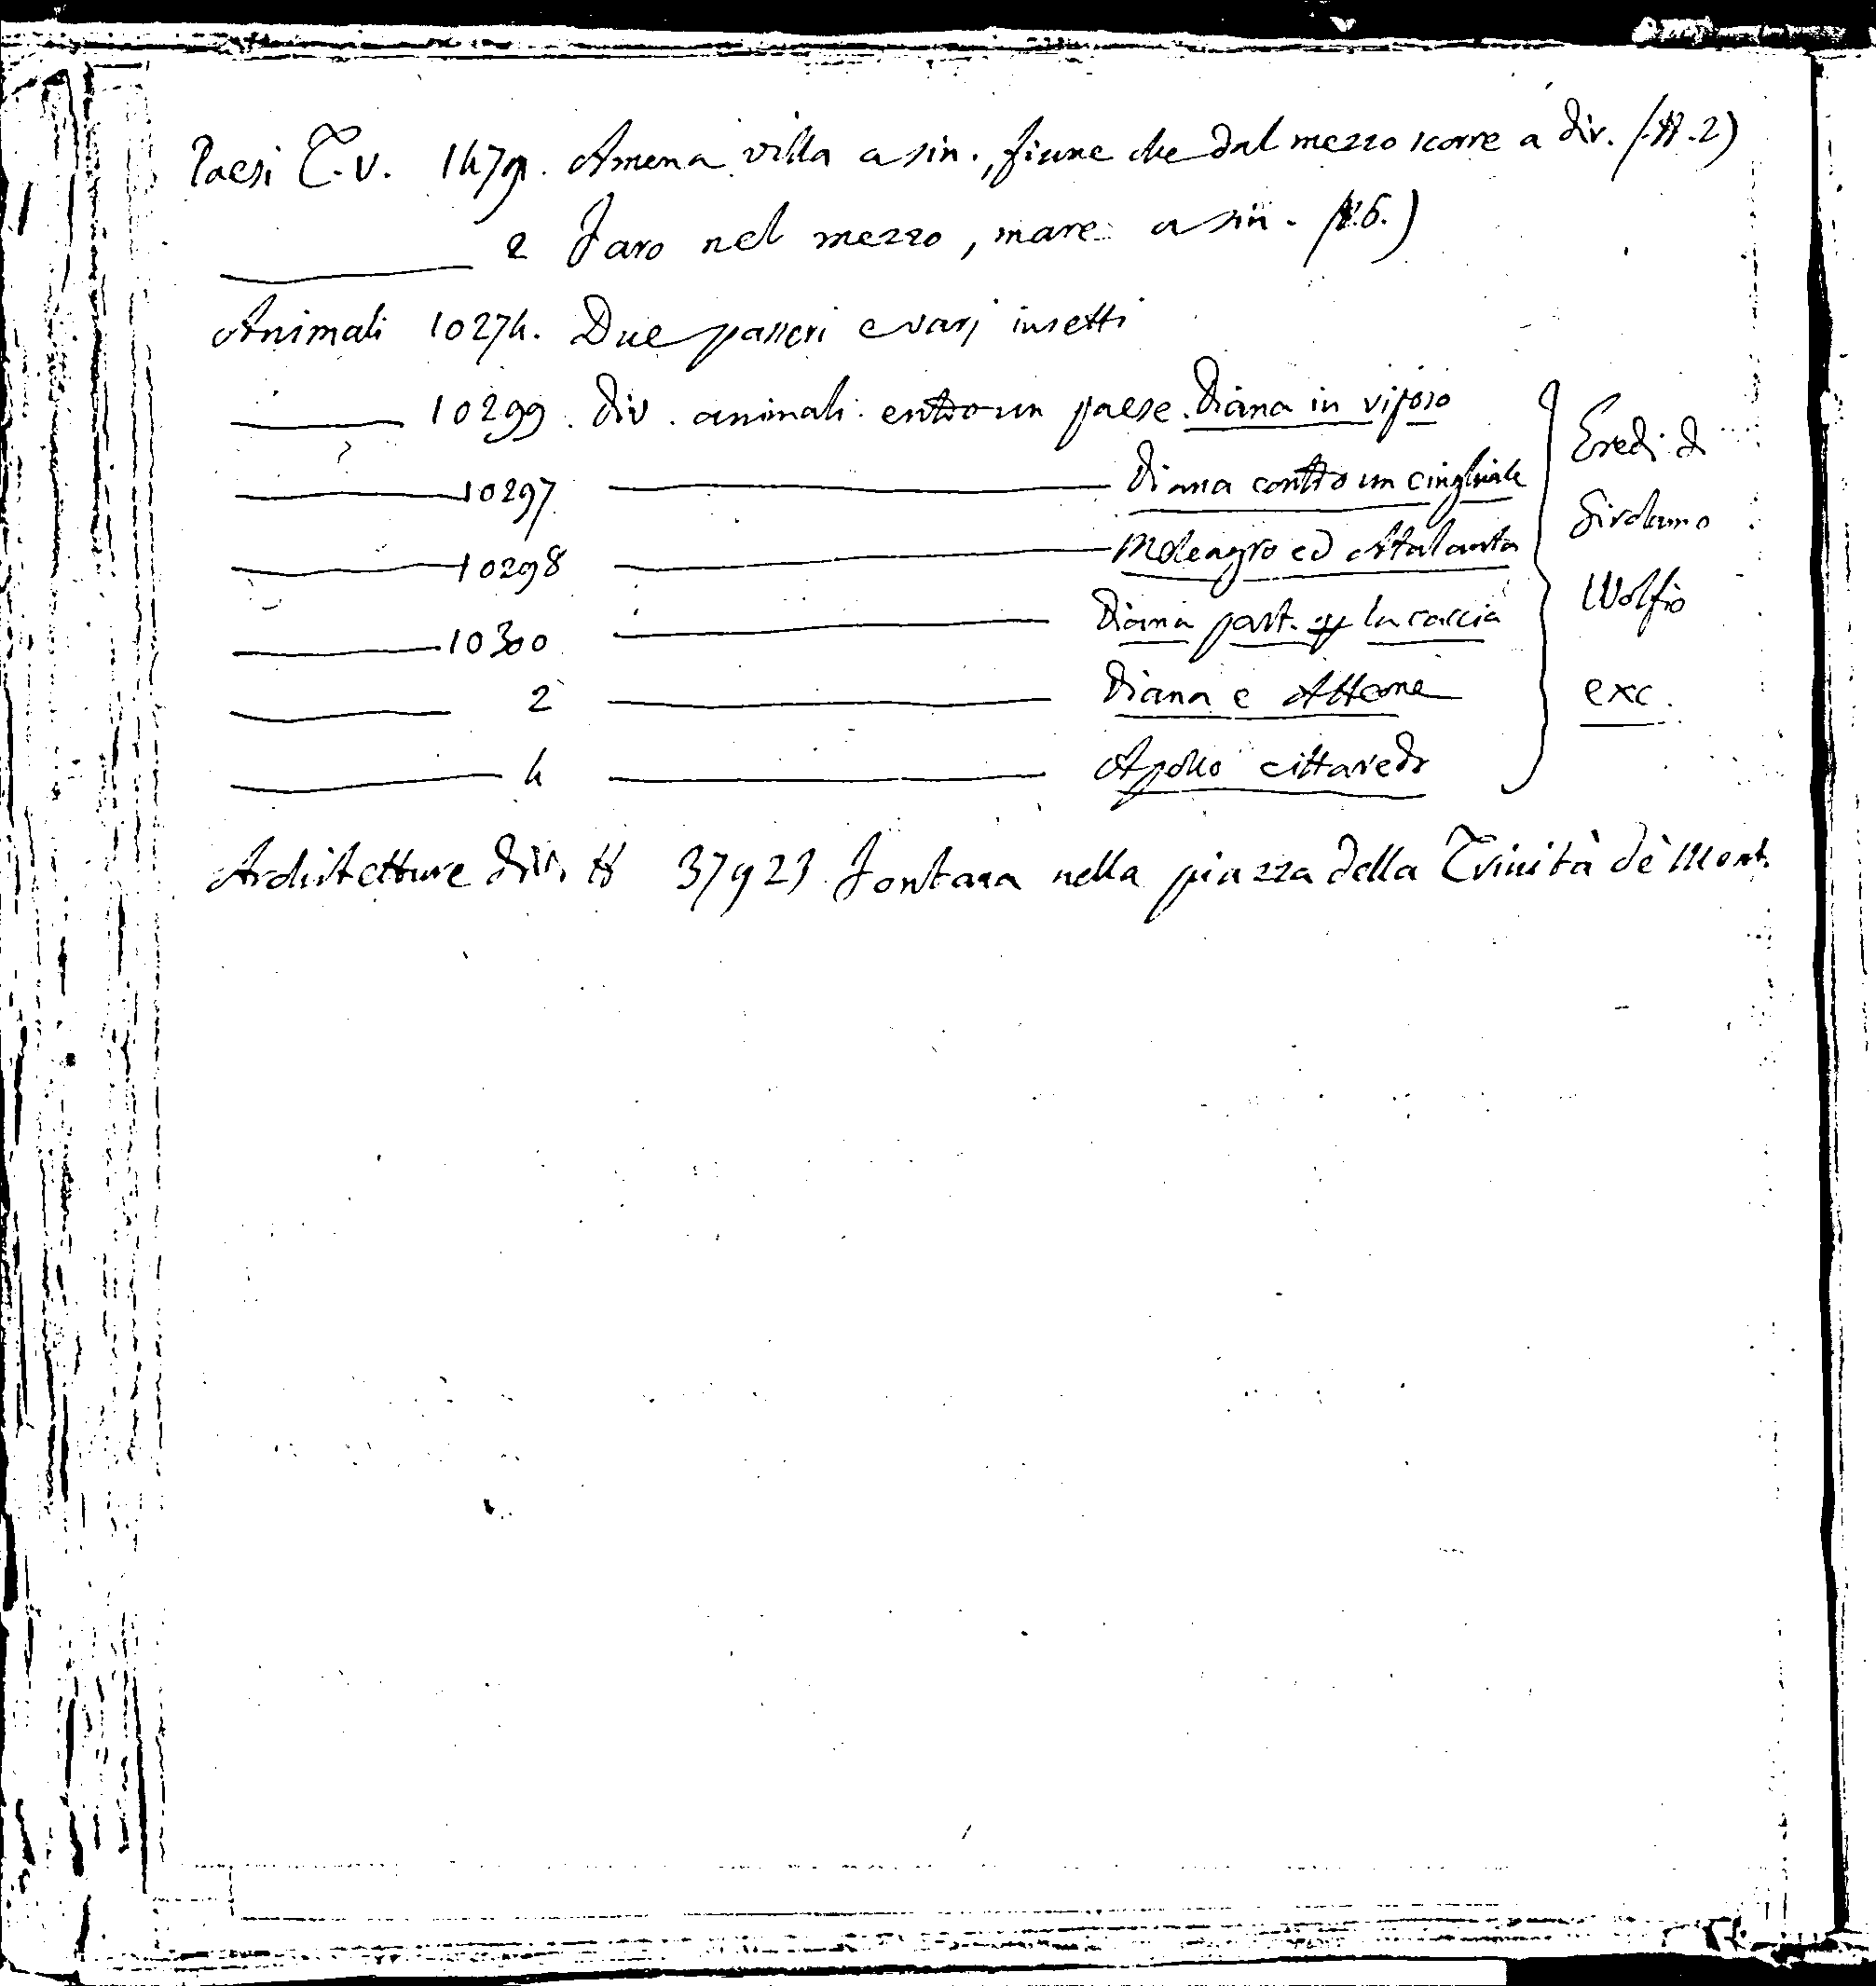 Paesi T.V. 1479. Amena villa a sin., fiume che dal mezzo scorre a dir. (H.2)
——— 2 Faro nel mezzo, mare a sin. (H.6.)
Animali 10274. Due passeri e varj insetti
——— 10299. div. animali entro un paese. Diana in riposo
——— 10297 ——— Diana contro un cinghiale
——— 10298 ——— Meleagro ed Atalanta
——— 10300 ——— Diana part. p la caccia
——— 2 ——— Diana e Atteone
——— 4 ——— Apollo cittaredo
Eredi di
Girolamo
Wolfio
exc.
Architetture div. H 37923 Fontana nella piazza della Trinità de' Mont.